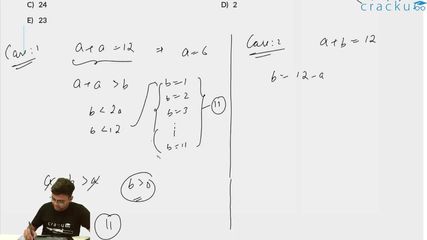 cracku
C) 24
D) 2
E) 23
Case: 1
a + a = 12 ⇒ a = 6
a + a > b
b < 2a
b < 12
b = 1
b = 2
b = 3
b = 11
11
b > 0
11
Case: 2
a + b = 12
b = 12 - a
cracku